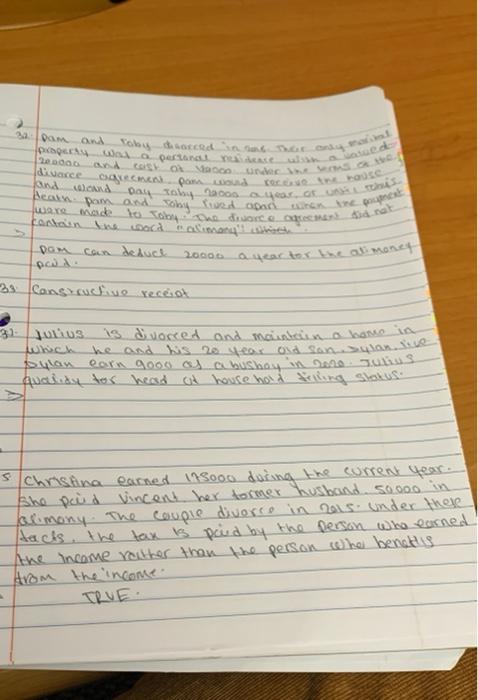 32. Pam and Toby divorced in 2016. Their only marital
property was a personal residence with a value of
200000 and cost of
divorce agreement. Pam would receive the house
and would pay Toby 20000 a year, or until Toby's
death. Pam and Toby lived apart when the payment
were made to Toby. The divorce agreement did not
contain the word "alimony"
=> Pam can deduct 20000 a year for the alimoney
paid.
Constructive receipt
Julius is divorced and maintain a home in
which he and his 20 year old son, Dylan, live
Dylan earn 9000 as a busboy in 2020. Julius
qualidy for head of household filling status.
=>
Christina earned 175000 duing the current year.
She paid Vincent, her former husband, 50,000 in
alimony. The couple divorce in 2015. Under thele
facts, the tax is paid by the person who earned
the income rather than the person who benefits
from the income.
TRUE.